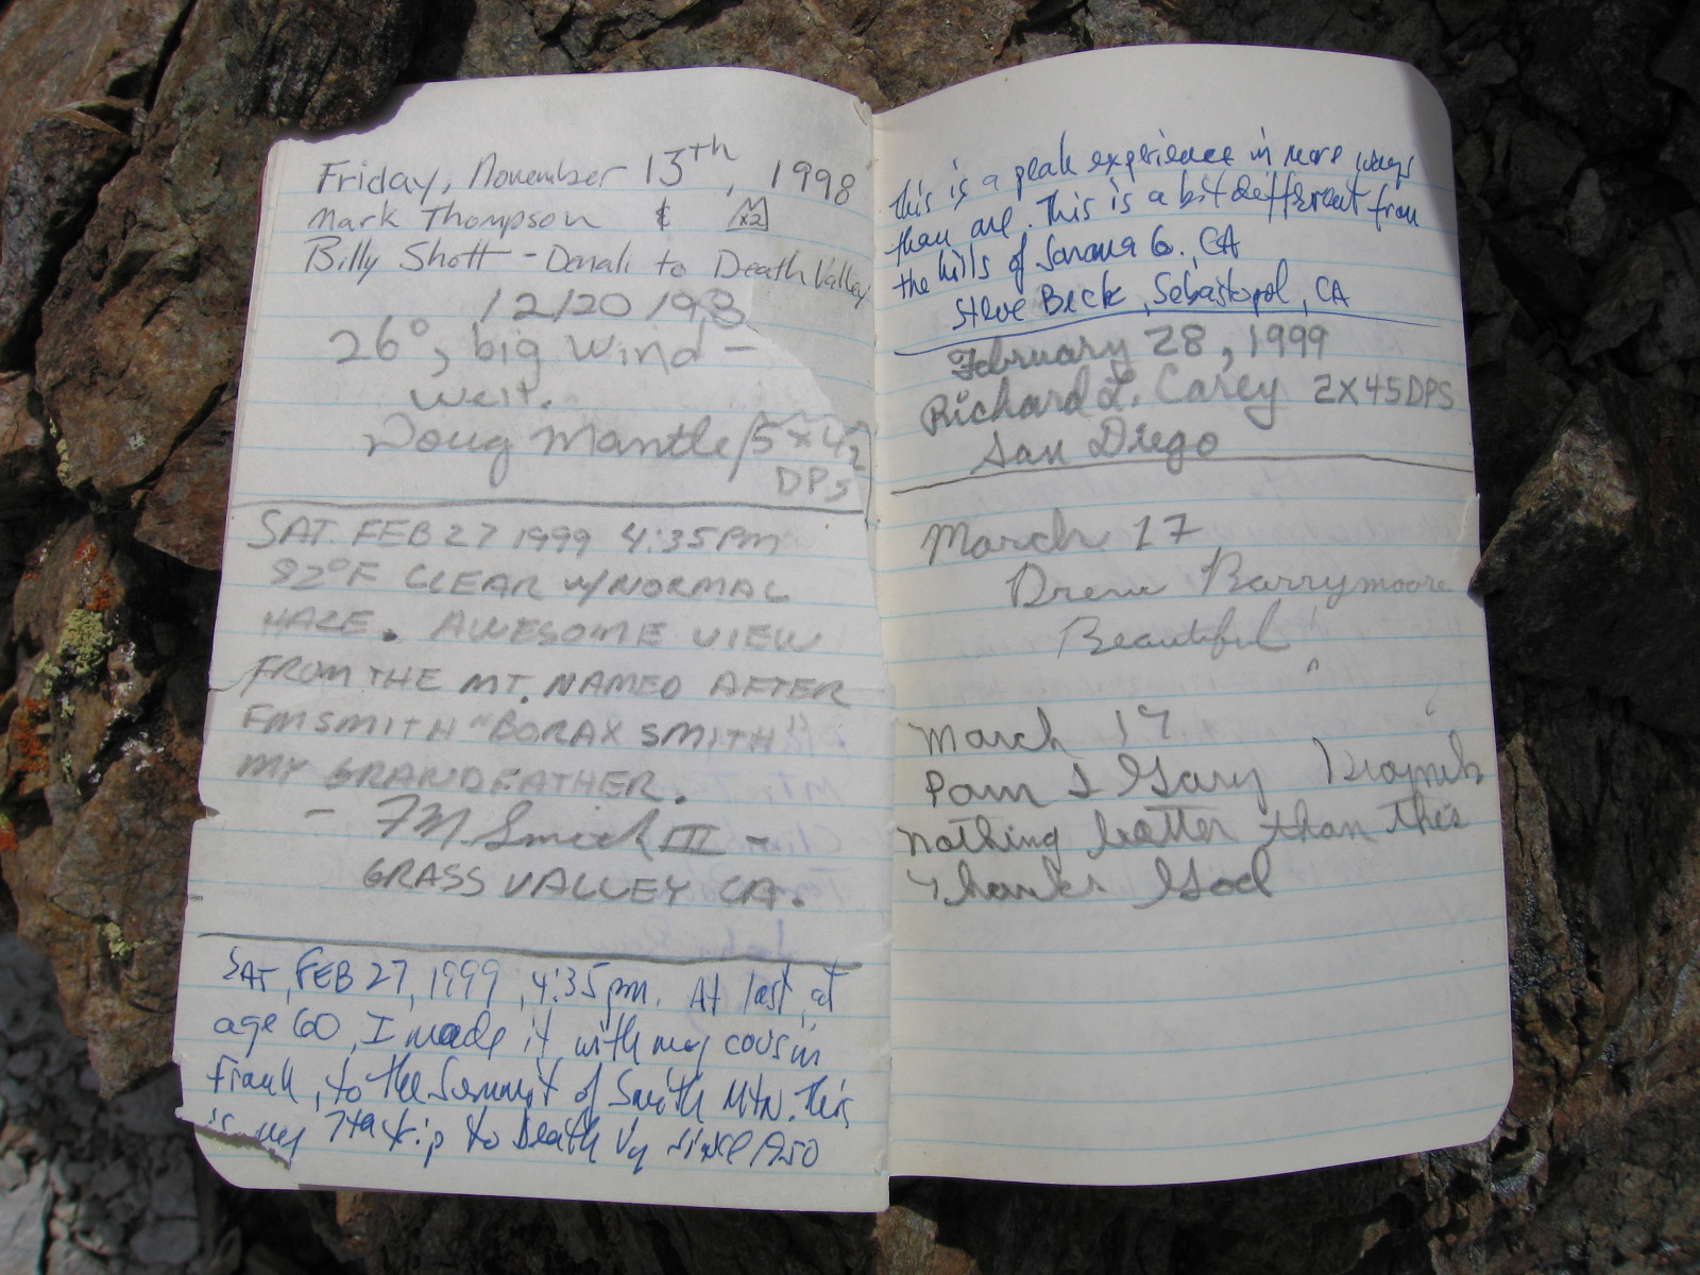 Friday, November 13th, 1998
Mark Thompson & x2
Billy Shott - Denali to Death Valley
12/20/98
26°, big wind -
west.
Doug Mantle/5x42
DPs
SAT. FEB 27 1999 4:35PM
82°F CLEAR w/NORMAL
HAZE. AWESOME VIEW
FROM THE MT. NAMED AFTER
FMSMITH "BORAX SMITH"
MY GRANDFATHER.
- FM Smith III -
GRASS VALLEY CA.
SAT, FEB 27, 1999, 4:35 pm. At last, at
age 60, I made it with my cousin
Frank, to the Summit of Smith Mtn. This
is my 7th trip to Death Vy since 1950
this is a peak experience in more ways
than one. This is a bit different from
the hills of Sonoma Co., CA
Steve Beck, Sebastopol, CA
February 28, 1999
Richard L. Carey 2X45DPS
San Diego
March 17
Drew Barrymoore
Beautiful
March 17
Pam & Gary
Nothing better than this
Thanks God